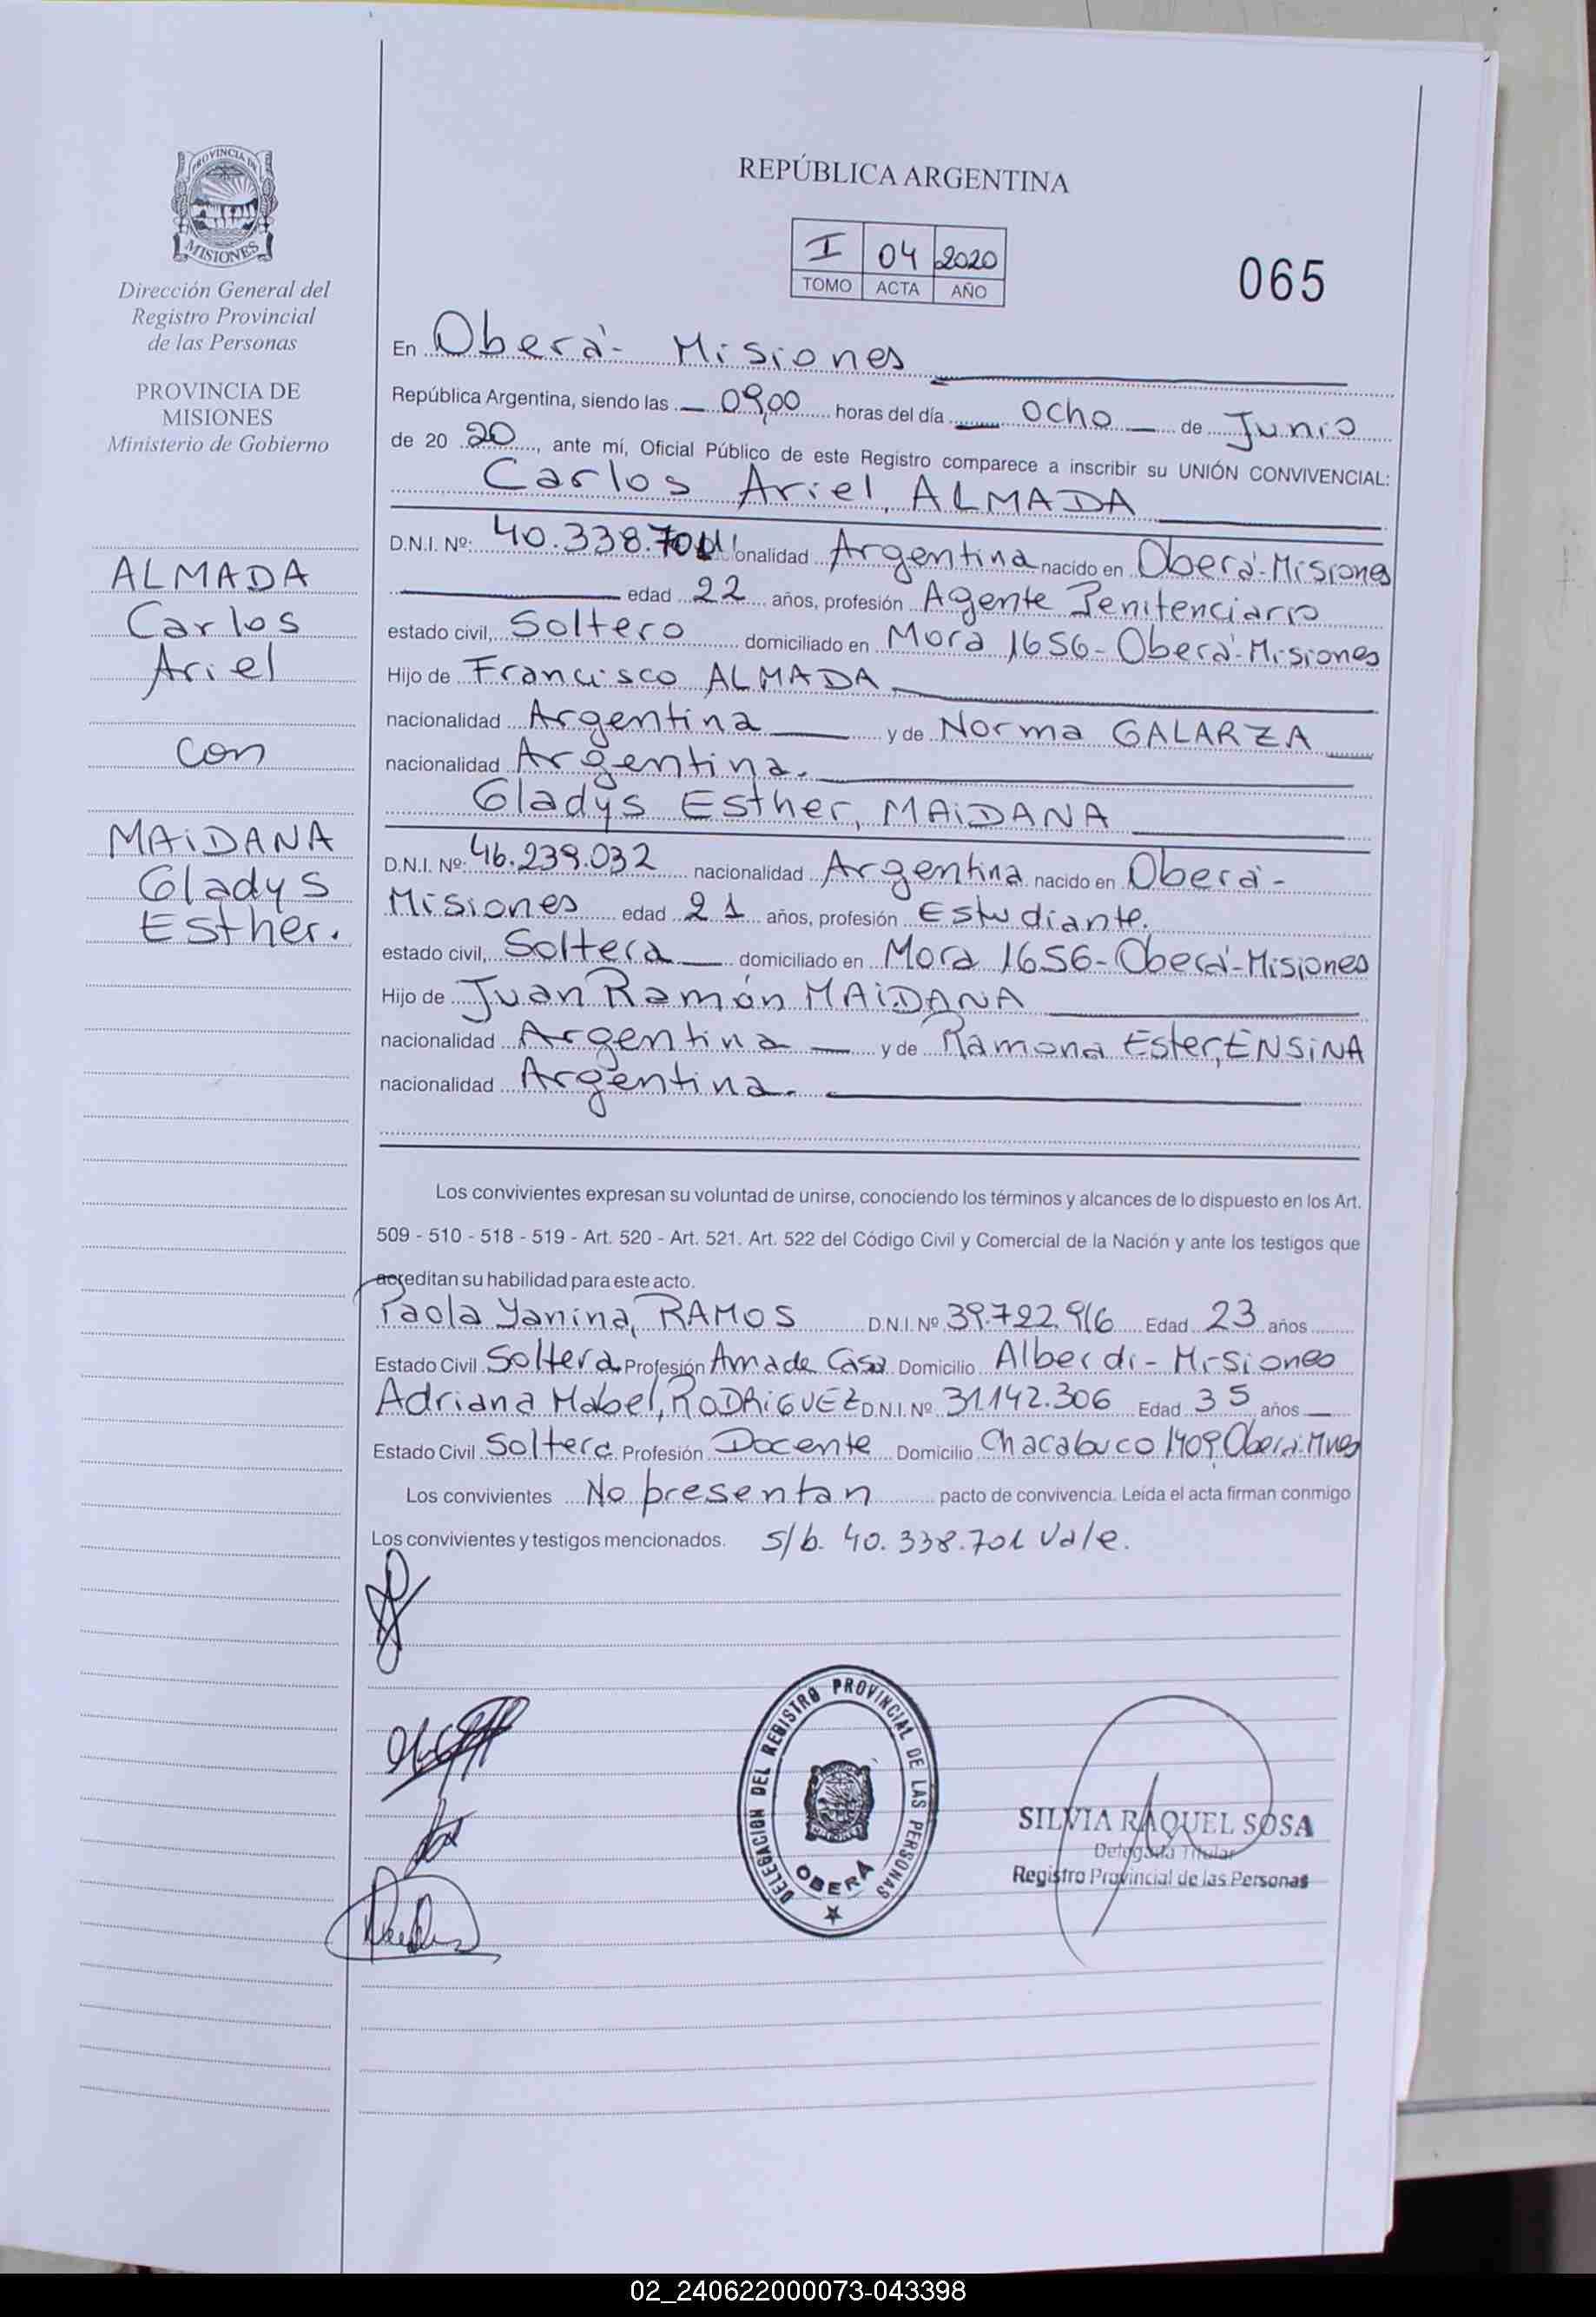 PROVINCIA DE
MISIONES
Dirección General del
Registro Provincial
de las Personas
PROVINCIA DE
MISIONES
Ministerio de Gobierno
ALMADA
Carlos
Ariel
con
MAiDANA
Gladys
Esther.
REPÚBLICA ARGENTINA
I 04 2020
TOMO ACTA AÑO
065
En Oberá- Misiones
República Argentina, siendo las 09,00 horas del día ocho de Junio
de 20 20, ante mí, Oficial Público de este Registro comparece a inscribir su UNIÓN CONVIVENCIAL:
Carlos Ariel, ALMADA
D.N.I. Nº: 40.338.701 onalidad Argentina nacido en Oberá-Misiones
edad 22 años, profesión Agente Penitenciario
estado civil, Soltero domiciliado en Mora 1656-Oberá-Misiones
Hijo de Francisco ALMADA
nacionalidad Argentina y de Norma GALARZA
nacionalidad Argentina.
Gladys Esther, MAiDANA
D.N.I. Nº: 46.239.032 nacionalidad Argentina nacido en Oberá-
Misiones edad 21 años, profesión Estudiante.
estado civil, Soltera domiciliado en Mora 1656-Oberá-Misiones
Hijo de Juan Ramón MAiDANA
nacionalidad Argentina y de Ramona Ester, ENSiNA
nacionalidad Argentina.
Los convivientes expresan su voluntad de unirse, conociendo los términos y alcances de lo dispuesto en los Art.
509 - 510 - 518 - 519 - Art. 520 - Art. 521. Art. 522 del Código Civil y Comercial de la Nación y ante los testigos que
acreditan su habilidad para este acto.
Paola Yanina, RAMOS D.N.I. Nº 39.722.916 Edad 23 años
Estado Civil Soltera Profesión Ama de Casa Domicilio Alberdi - Misiones
Adriana Mabel, RODRiGUEZ D.N.I. Nº 31.142.306 Edad 35 años
Estado Civil Soltera Profesión Docente Domicilio Chacabuco 1409, Oberá. Mnes
Los convivientes No presentan pacto de convivencia. Leída el acta firman conmigo
Los convivientes y testigos mencionados. s/b. 40.338.701 Vale.
DELEGACION DEL REGISTRO PROVINCIAL DE LAS PERSONAS
OBERÁ
SILVIA RAQUEL SOSA
Delegada Titular
Registro Provincial de las Personas
02_240622000073-043398